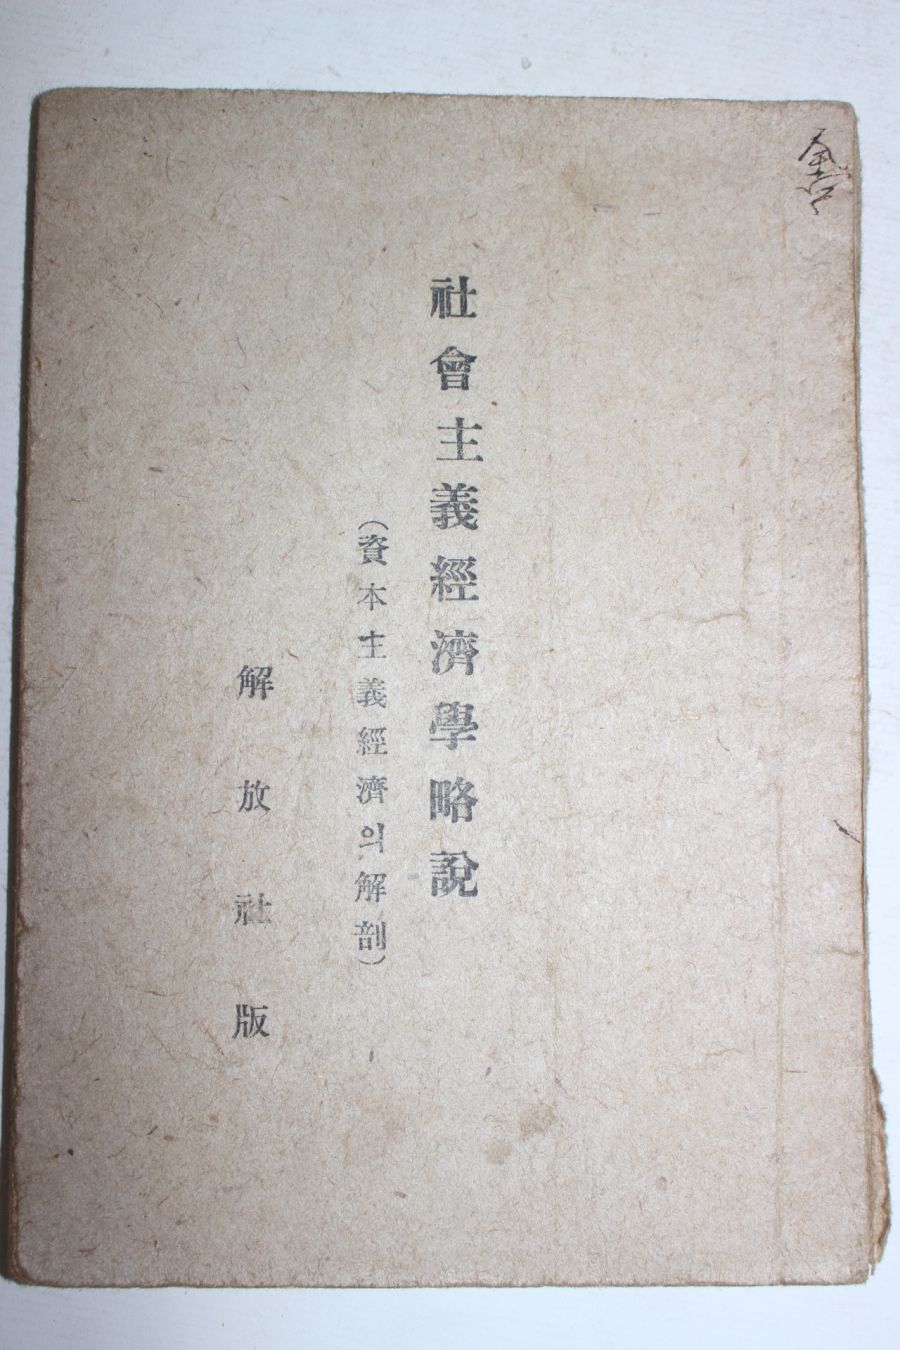 社會主義經濟學略說
(資本主義經濟의解剖)
解放社版